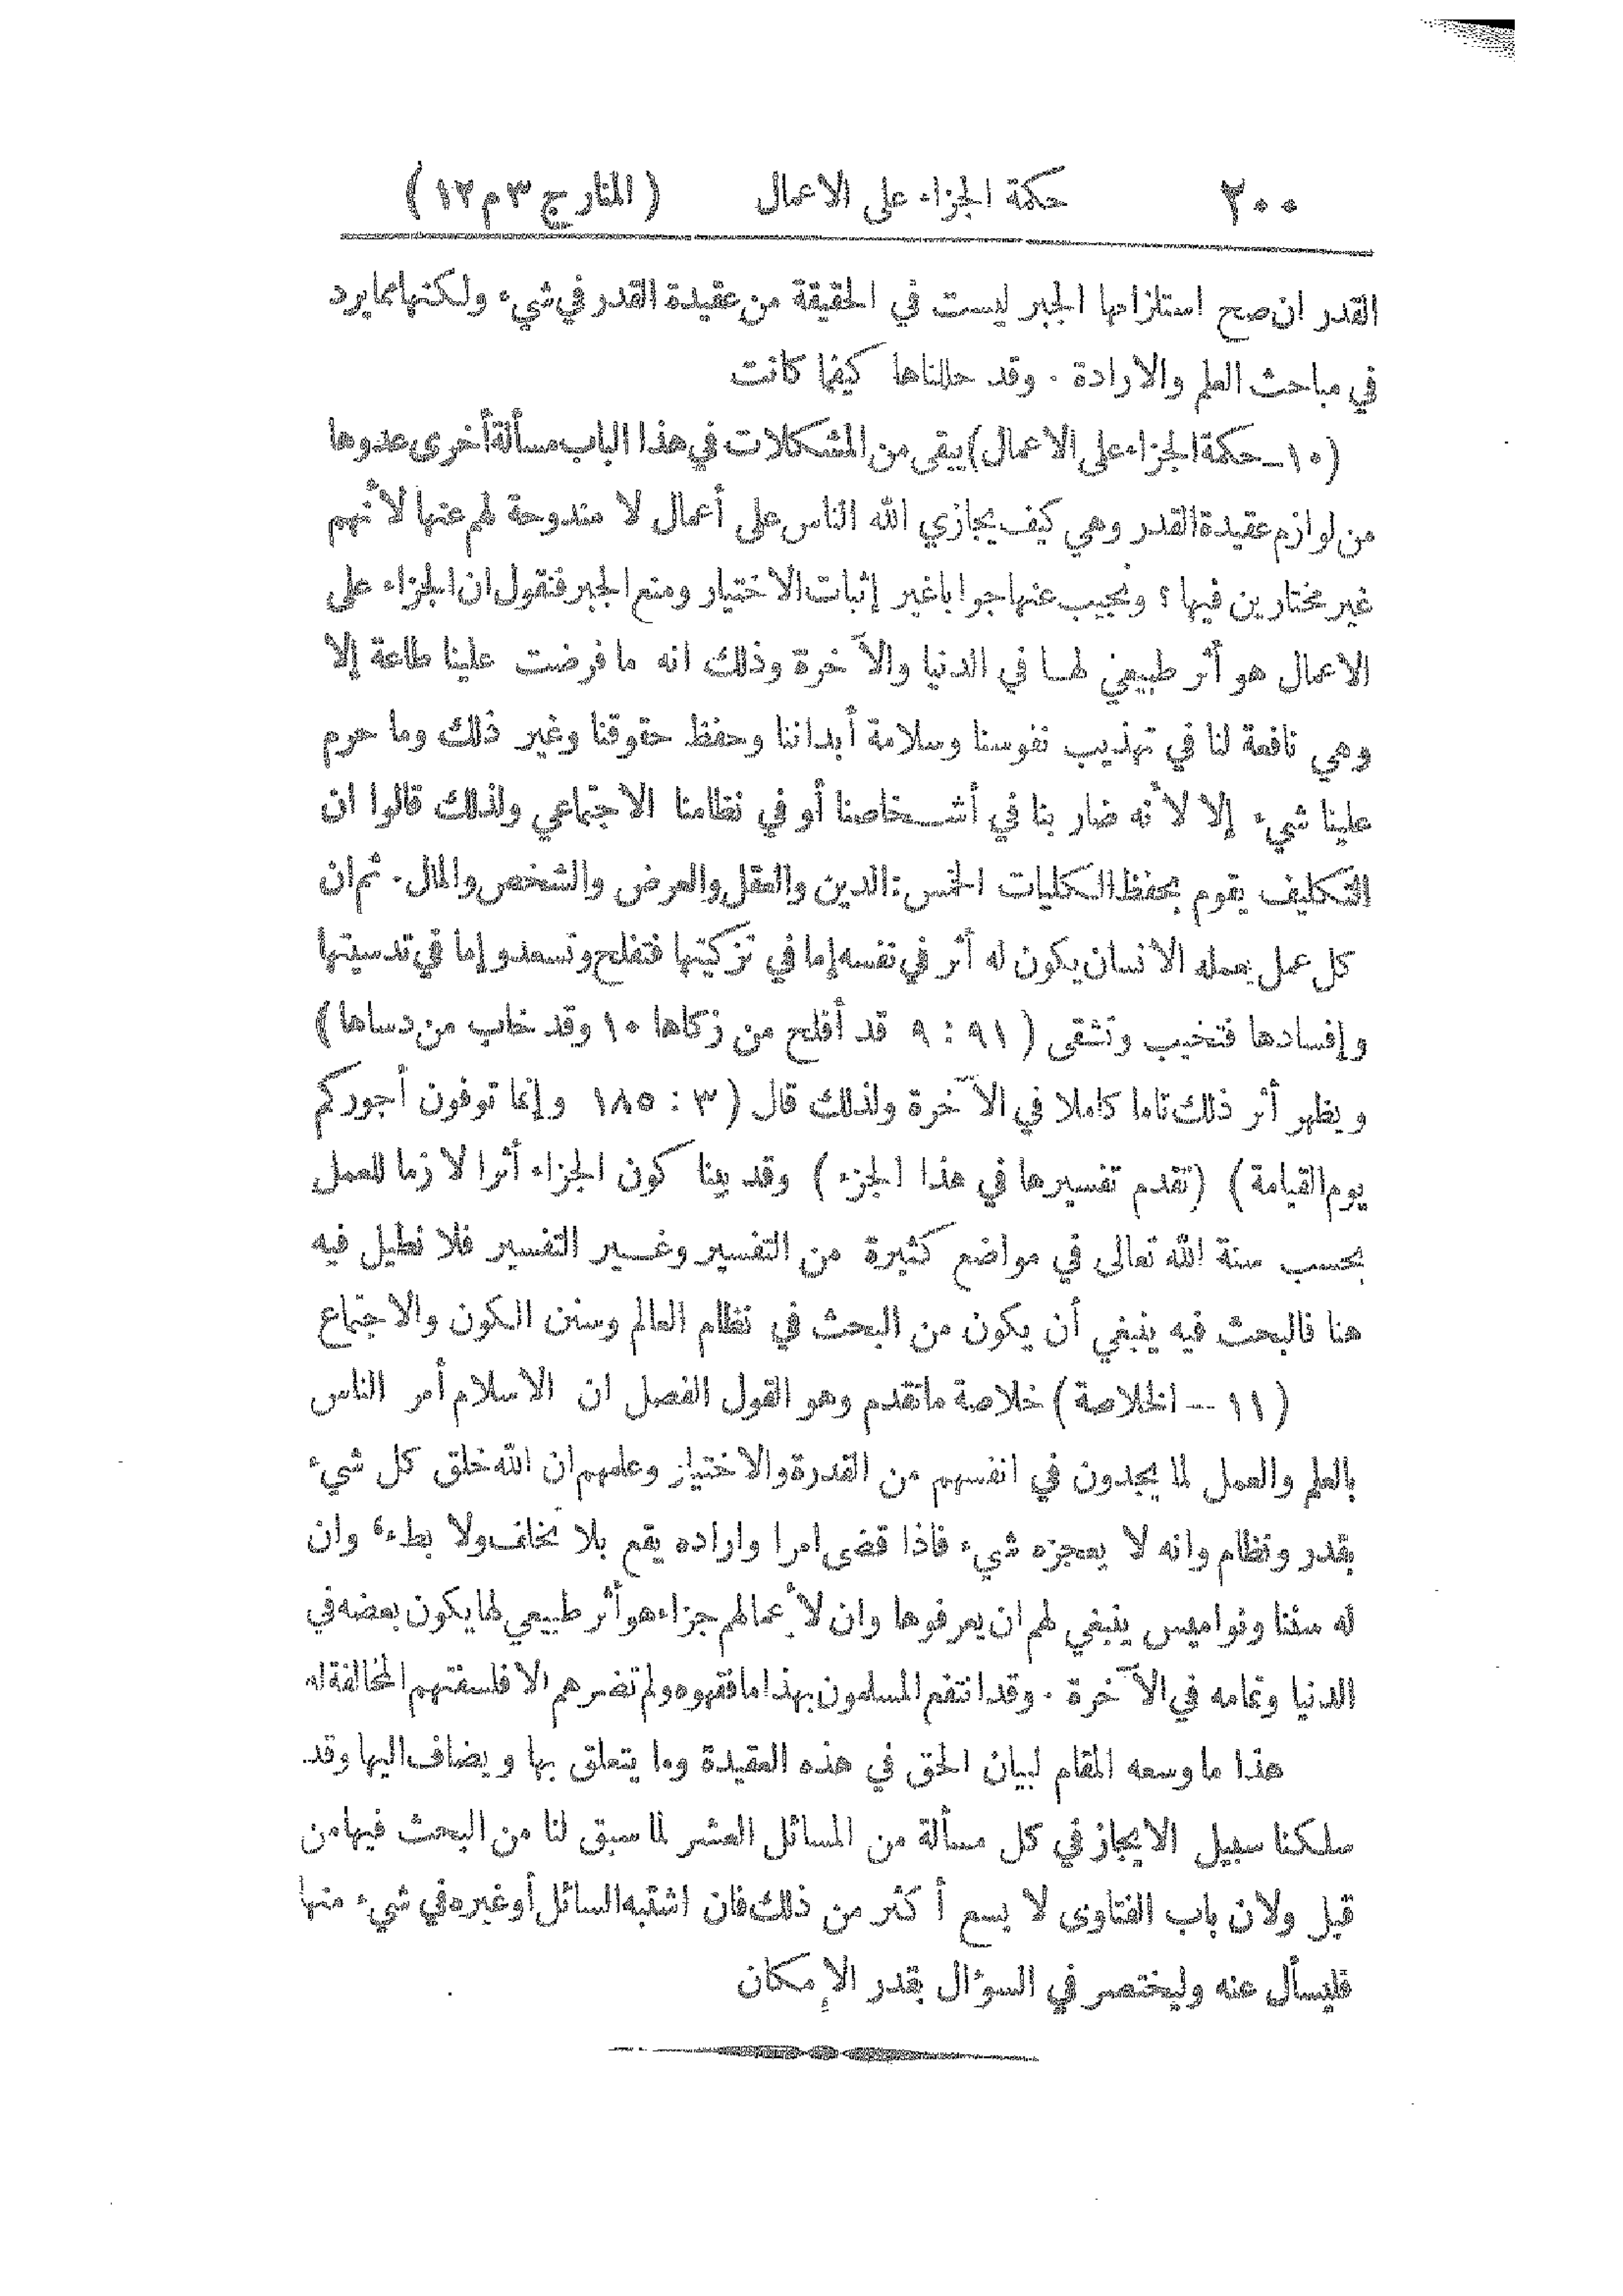 ٢٠٠ حكمة الجزاء على الاعمال ( المنار ج ٣ م ١٢ )
القدر ان صح استلزامها الجبر ليست في الحقيقة من عقيدة القدر في شيء ولكنها مما يرد
في مباحث العلم والارادة . وقد حللناها كيفما كانت
(١٠_ حكمة الجزاء على الاعمال) يبقى من المشكلات في هذا الباب مسألة أخرى عدوها
من لوازم عقيدة القدر وهي كيف يجازي الله الناس على أعمال لا مندوحة لهم عنها لأنهم
غير مختارين فيها ؟ ونجيب عنها جوابا غير إثبات الاختيار ومنع الجبر فنقول ان الجزاء على
الاعمال هو أثر طبيعي لهــا في الدنيا والآخرة وذلك انه ما فرضت علينا طاعة إلا
وهي نافعة لنا في تهذيب نفوسنا وسلامة أبداننا وحفظ حقوقنا وغير ذلك وما حرم
علينا شيء إلا لأنه ضار بنا في أشــخاصنا أو في نظامنا الاجتماعي ولذلك قالوا ان
التكليف يقوم بحفظ الكليات الخمس : الدين والعقل والعرض والشخص والمال . ثم ان
كل عمل يعمله الانسان يكون له أثر في نفسه إما في تزكيتها فتفلح وتسعد وإما في تدسيتها
وإفسادها فتخيب وتشقى ( ٩١ : ٩ قد أفلح من زكاها ١٠ وقد خاب من دساها )
ويظهر أثر ذلك تاما كاملا في الآخرة ولذلك قال ( ٣ : ١٨٥ وإنما توفون أجوركم
يوم القيامة ) (تقدم تفسيرها في هذا الجزء ) وقد بينا كون الجزاء أثرا لازما للعمل
بحسب سنة الله تعالى في مواضع كثيرة من التفسير وغــير التفسير فلا نطيل فيه
هنا فالبحث فيه ينبغي أن يكون من البحث في نظام العالم وسنن الكون والاجتماع
( ١١ -- الخلاصة ) خلاصة ما تقدم وهو القول الفصل ان الاسلام أمر الناس
بالعلم والعمل لما يجدون في انفسهم من القدرة والاختيار وعلمهم ان الله خلق كل شيء
بقدر ونظام وانه لا يعجزه شيء فاذا قضى امرا واراده يقع بلا تخلف ولا بطء ، وان
له سننا ونواميس ينبغي لهم ان يعرفوها وان لأعمالهم جزاء هو أثر طبيعي لها يكون بعضه في
الدنيا وتمامه في الآخرة . وقد انتفع المسلمون بهذا ما فقهوه ولم تضرهم الا فلسفتهم المخالفة له
هذا ما وسعه المقام لبيان الحق في هذه العقيدة وما يتعلق بها ويضاف اليها وقد
سلكنا سبيل الايجاز في كل مسألة من المسائل العشر لما سبق لنا من البحث فيها من
قبل ولان باب الفتاوى لا يسع أكثر من ذلك فان اشتبه السائل أو غيره في شيء منها
فليسأل عنه وليختصر في السؤال بقدر الإمكان